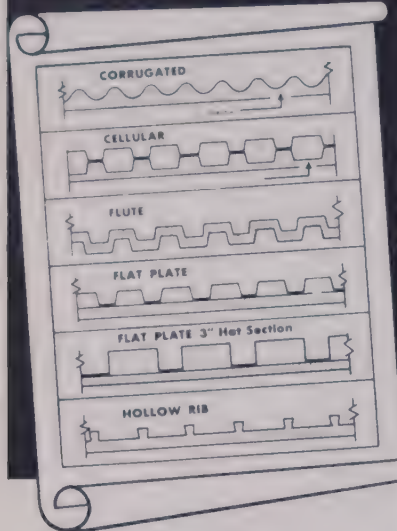 CORRUGATED
CELLULAR
FLUTE
FLAT PLATE
FLAT PLATE 3" Hat Section
HOLLOW RIB